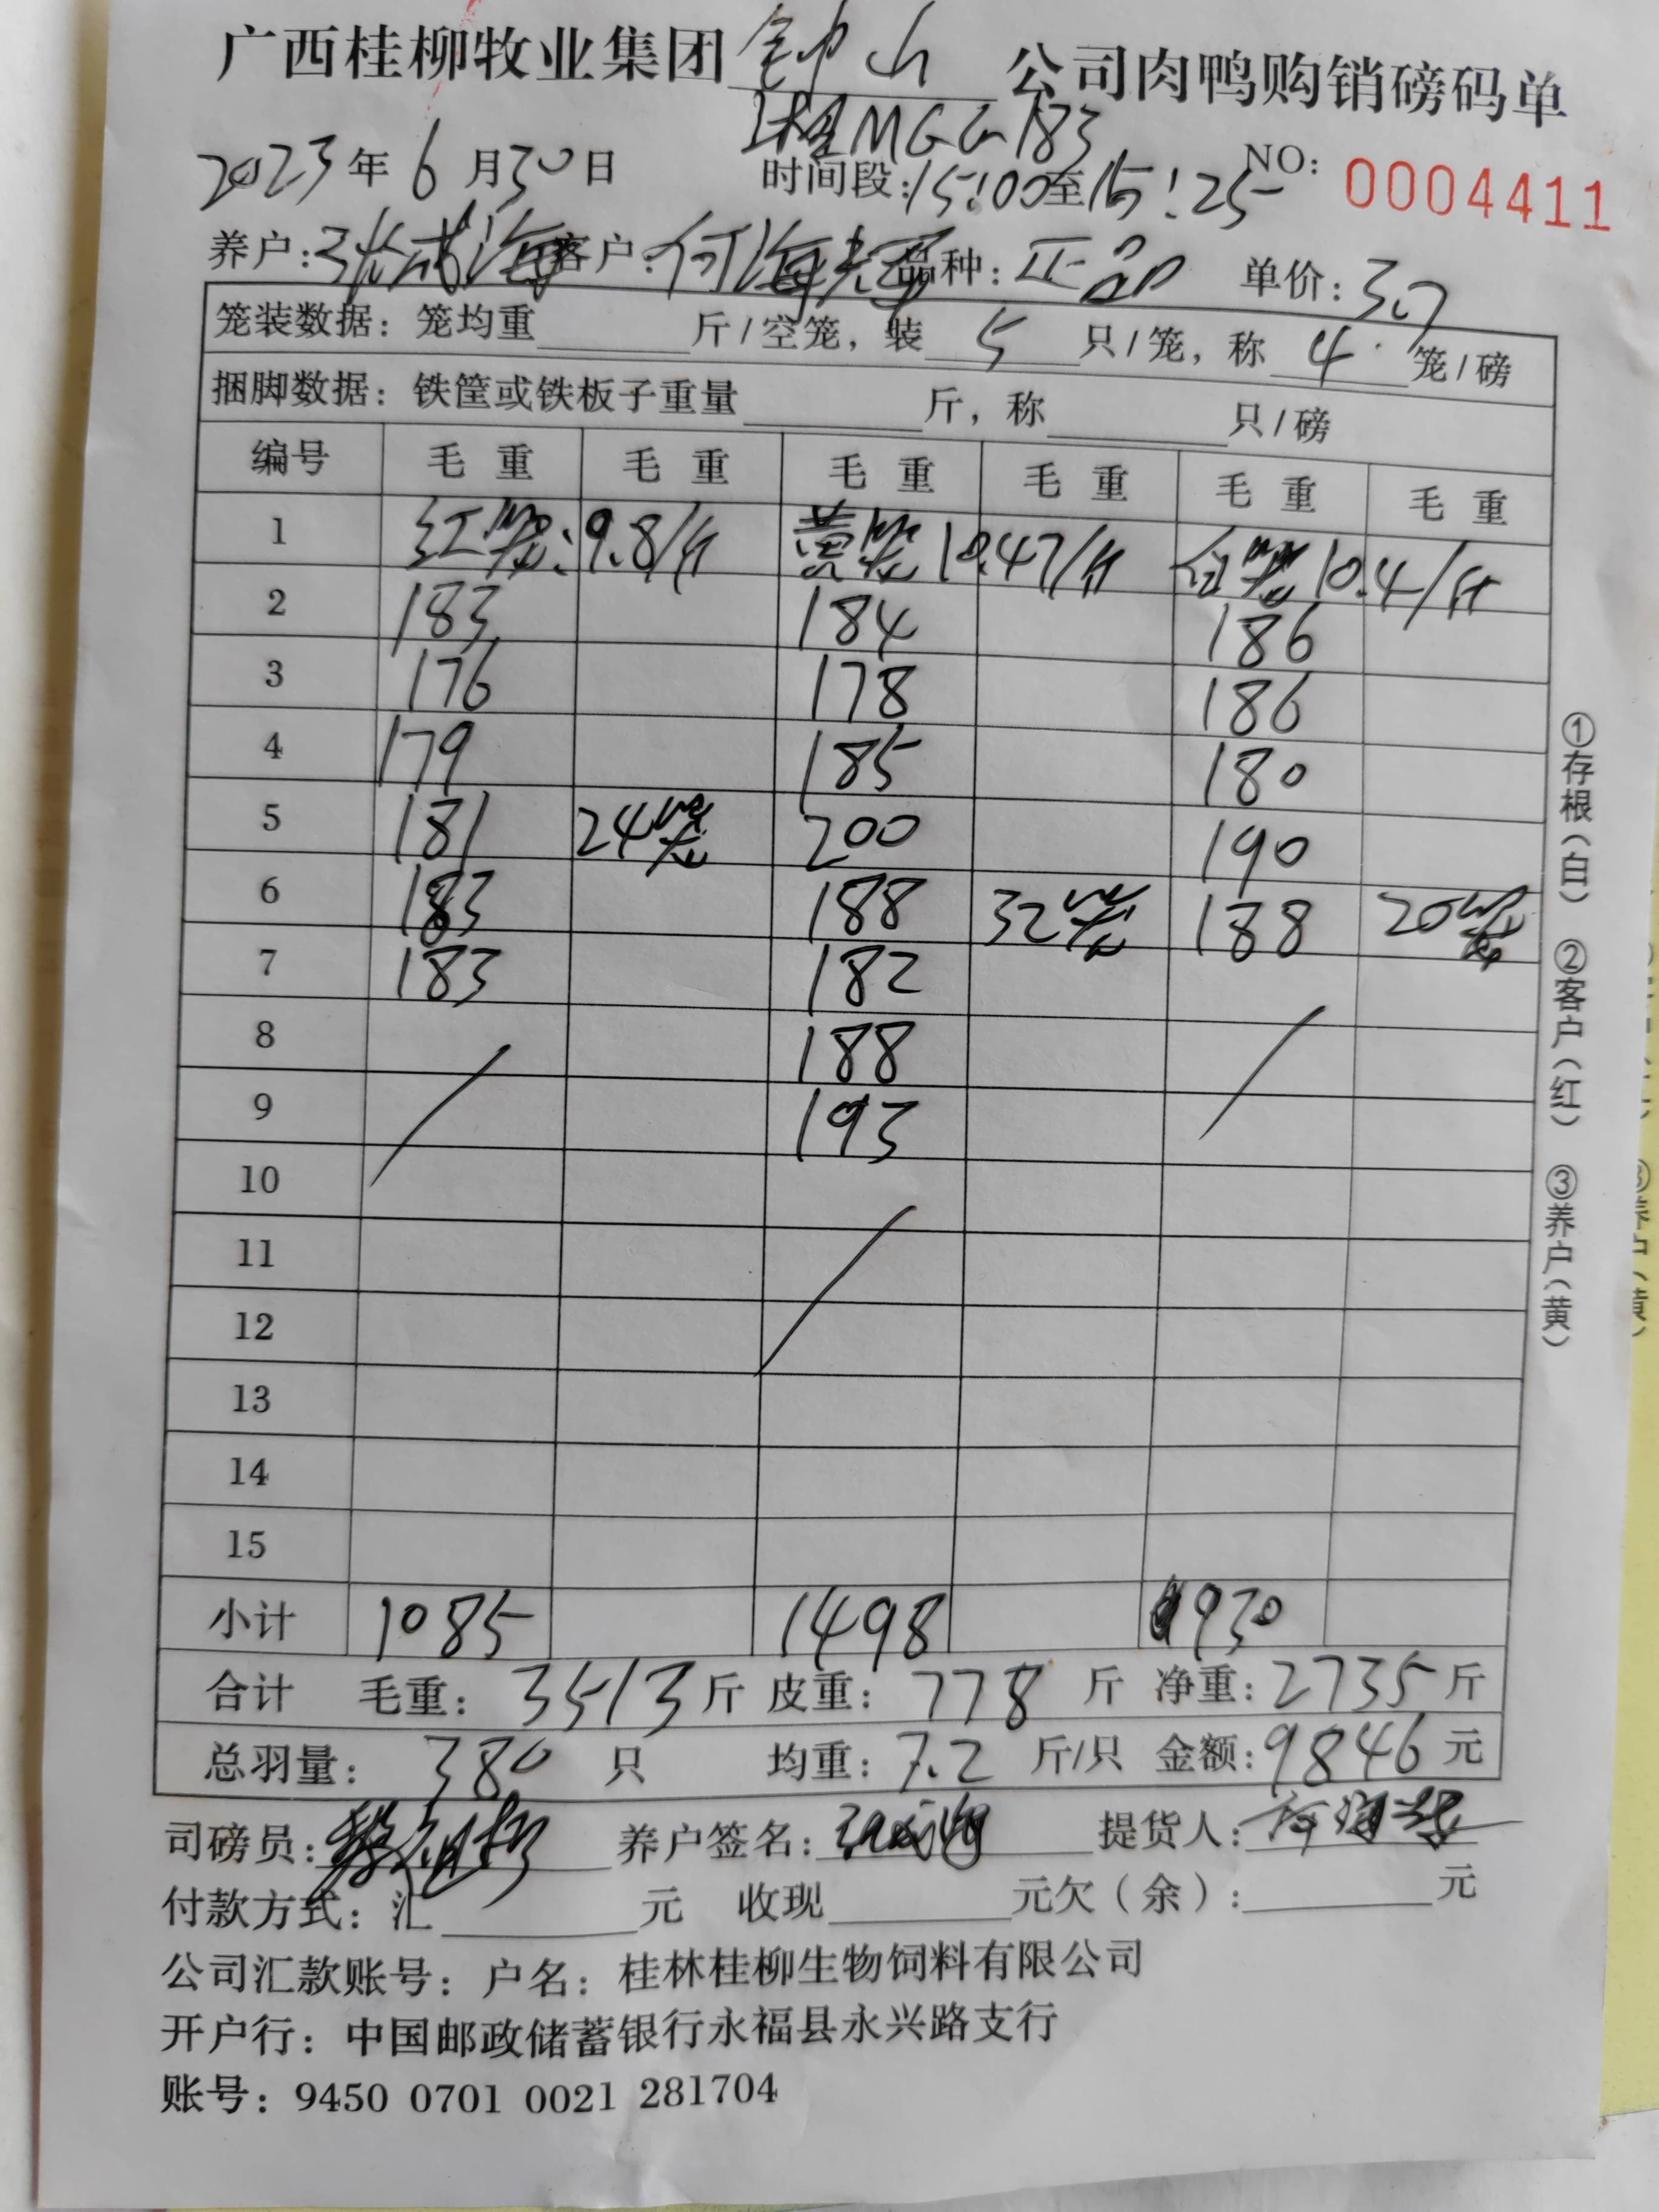 广西桂柳牧业集团 钟山 公司肉鸭购销磅码单
MGG183
2023年6月30日 时间段:15:00至15:25 NO: 0004411
养户:张成海 客户:何海 品种:正品 单价:3.7
笼装数据: 笼均重 斤/空笼, 装 5 只/笼, 称 4 笼/磅
捆脚数据: 铁筐或铁板子重量 斤, 称 只/磅
编号 毛重 毛重 毛重 毛重 毛重 毛重
1 红笼:9.8/个 黄笼10.47/个 白笼10.4/个
2 183 184 186
3 176 178 186
4 179 185 180
5 181 24笼 200 190
6 183 188 32笼 188 20笼
7 183 182
8 188
9 193
10
11
12
13
14
15
小计 1085 1498 930
合计 毛重: 3513斤 皮重: 778 斤 净重: 2735斤
总羽量: 380 只 均重: 7.2 斤/只 金额:9846元
司磅员: 养户签名: 张成海 提货人:
付款方式: 汇 元 收现 元欠(余): 元
公司汇款账号: 户名: 桂林桂柳生物饲料有限公司
开户行: 中国邮政储蓄银行永福县永兴路支行
账号: 9450 0701 0021 281704
①存根(白) ②客户(红) ③养户(黄)